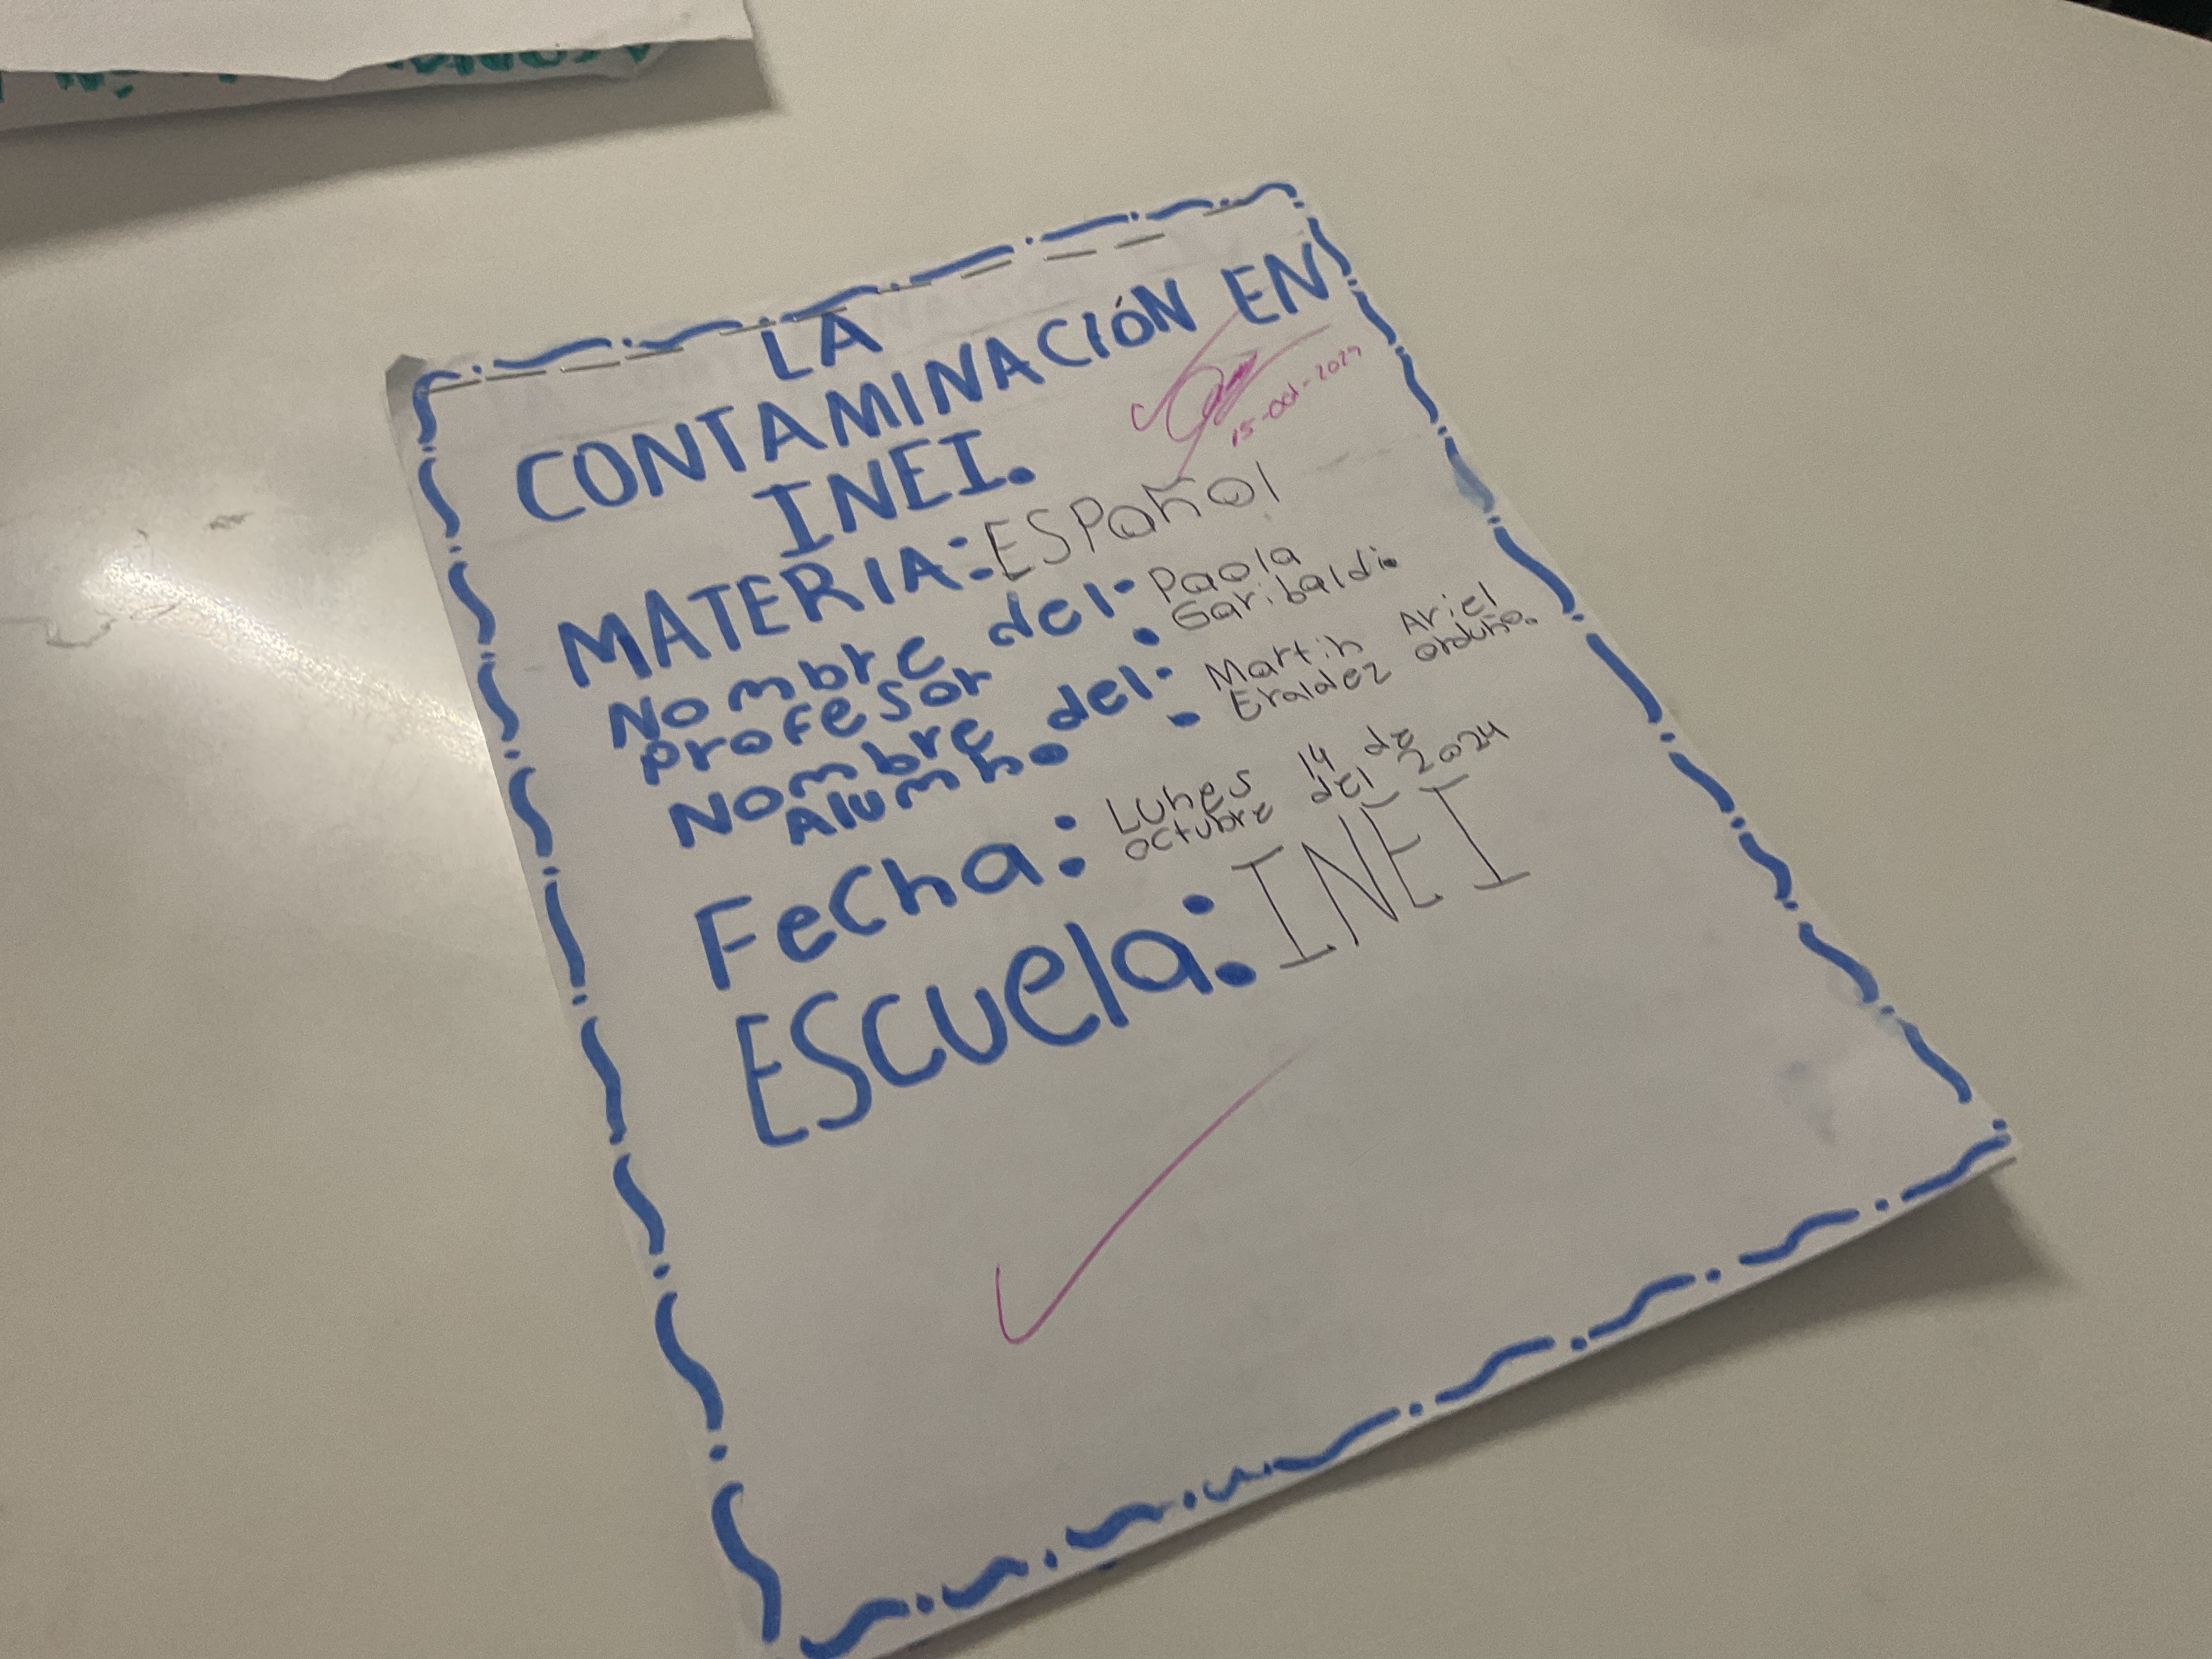 LA
CONTAMINACIÓN EN
INEI.
15-Oct-2024
MATERIA: ESPAñOl
Nombre del: Paola
Profesor Garibaldi
Nombre del: Martin Ariel
Alumno. Eraldez orduño.
Fecha: Lunes 14 de
octubre del 2024
ESCUEla: INEI